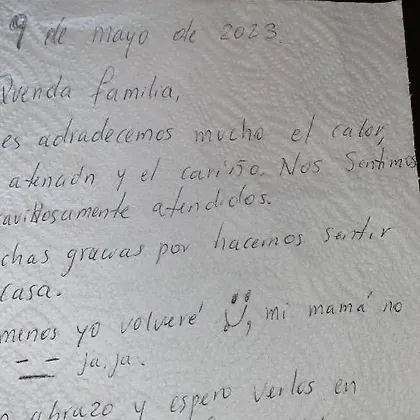 9 de mayo de 2023.
Querida familia,
es adradecemos mucho el calor,
atención y el cariño. Nos sentimos
avillosamente atendidos.
chas gracias por hacernos sentir
casa.
menos yo volveré, mi mamá no
ja.ja.
abrazo y espero verlos en